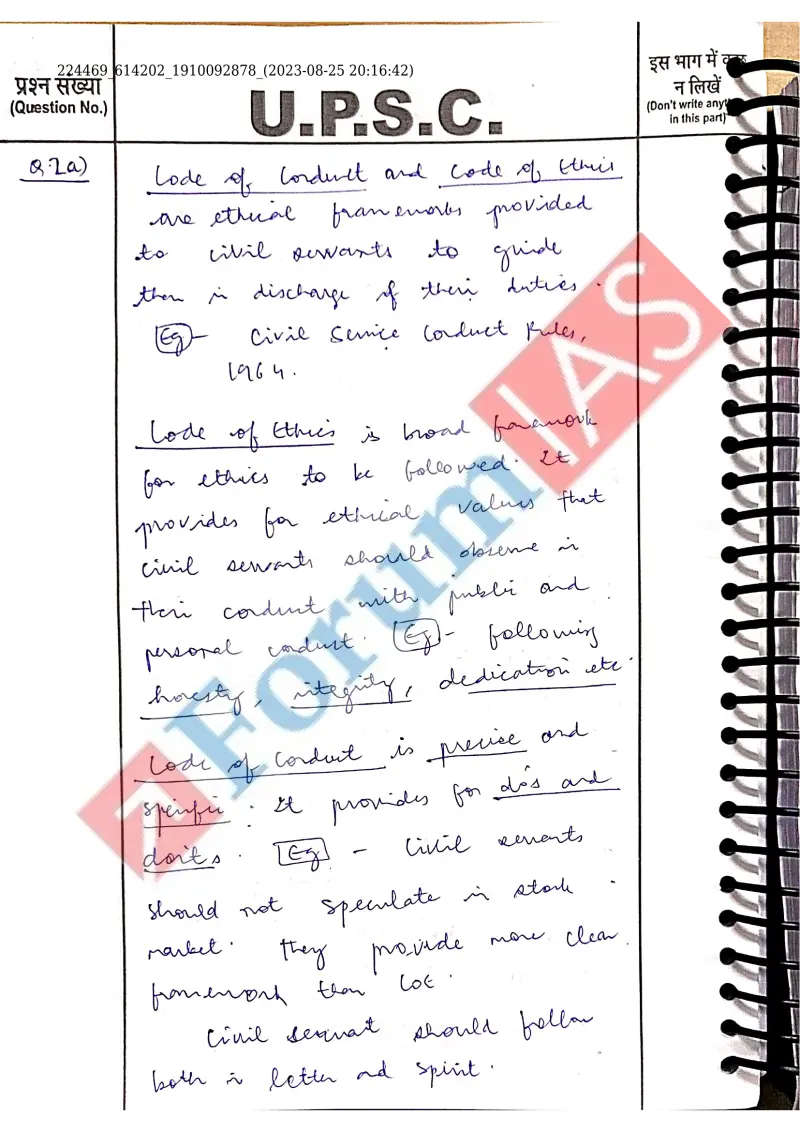 224469_614202_1910092878_(2023-08-25 20:16:42)
प्रश्न संख्या
(Question No.)
U.P.S.C.
इस भाग में कुछ
न लिखें
(Don't write anything
in this part)
Q.2a)
Code of Conduct and Code of Ethics
are ethical frameworks provided
to civil servants to guide
them in discharge of their duties.
Eg - Civil Service Conduct Rules,
1964.
Code of Ethics is broad framework
for ethics to be followed. It
provides for ethical values that
civil servants should observe in
their conduct with public and
personal conduct. Eg - following
honesty, integrity, dedication etc.
Code of Conduct is precise and
specific. It provides for do's and
don'ts. Eg - Civil servants
should not speculate in stock
market. They provide more clear
framework than CoE.
Civil servant should follow
both in letter and spirit.
ForumIAS